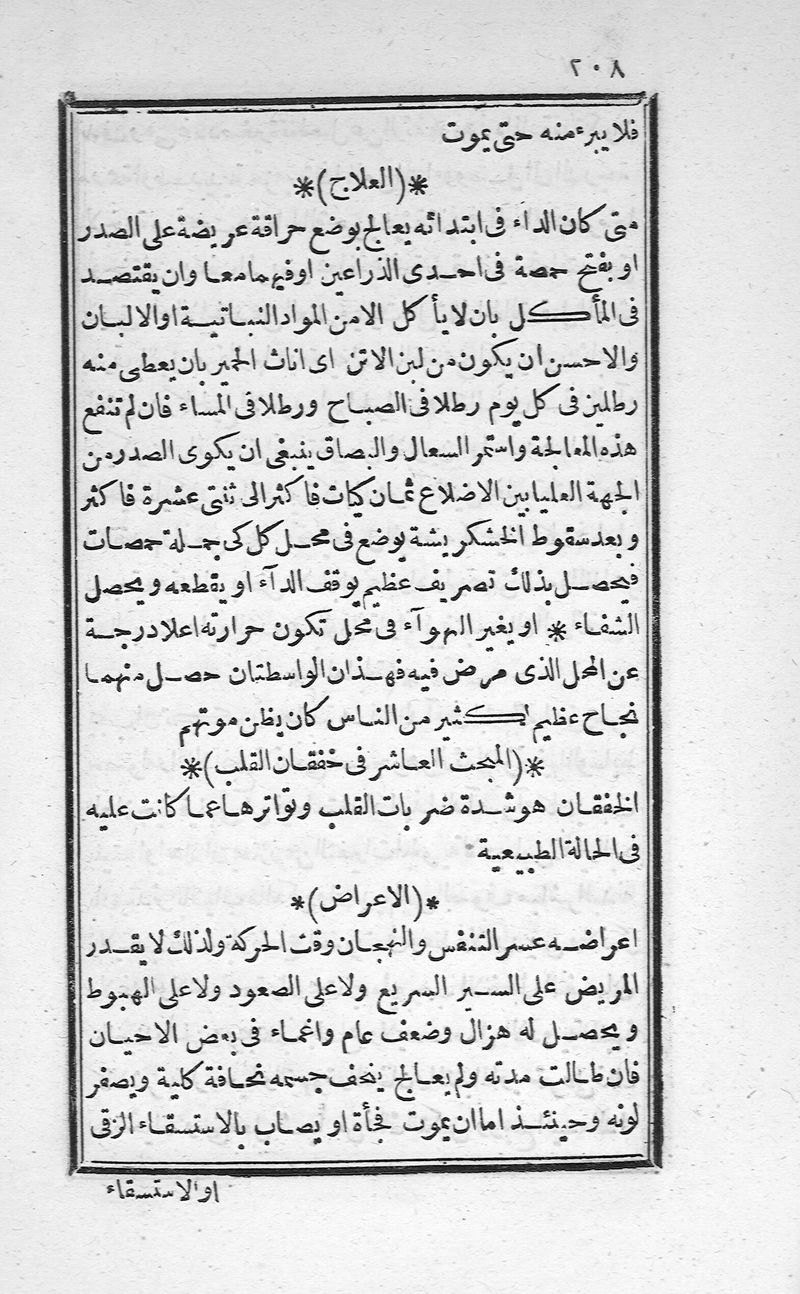 ٢٠٨
فلا يبرء منه حتى يموت
*(العلاج)*
متى كان الداء فى ابتدائه يعالج بوضع حراقة عريضة على الصدر
او بفتح حمصة فى احدى الذراعين او فيهما معا وان يقتصد
فى المأكل بان لا يأكل الا من المواد النباتية او الالبان
والاحسن ان يكون من لبن الاتن اى اناث الحمير بان يعطى منه
رطلين فى كل يوم رطلا فى الصباح ورطلا فى المساء فان لم تنفع
هذه المعالجة واستمر السعال والبصاق ينبغى ان يكوى الصدر من
الجهة العليا بين الاضلاع ثمان كيات فاكثر الى ثنتى عشرة فاكثر
وبعد سقوط الخشكريشة يوضع فى محل كل كى جملة حمصات
فيحصل بذلك تصريف عظيم يوقف الدآء او يقطعه ويحصل
الشفاء * او يغير الهوآء فى محل تكون حرارته اعلا درجة
عن المحل الذى مرض فيه فهذان الواسطتان حصل منهما
نجاح عظيم لكثير من الناس كان يظن موتهم
*(المبحث العاشر فى خفقان القلب)*
الخفقان هو شدة ضربات القلب وتواترها عما كانت عليه
فى الحالة الطبيعية
*(الاعراض)*
اعراضه عسر التنفس والنهجان وقت الحركة ولذلك لا يقدر
المريض على السير السريع ولا على الصعود ولا على الهبوط
ويحصل له هزال وضعف عام واغماء فى بعض الاحيان
فان طالت مدته ولم يعالج ينحف جسمه نحافة كلية ويصفر
لونه وحينئذ اما ان يموت فجأة او يصاب بالاستسقاء الزقى
او الاستسقاء